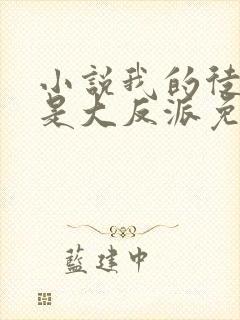 小說我的徒
是大反派免
藍建中